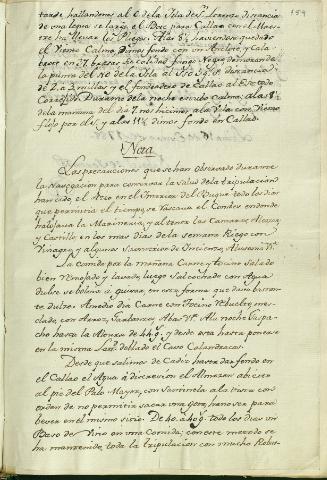 tarde hallandome al O de la Isla de Sn. Lorenzo distancia
de una legua se largó el Bote para Callao con el Maes-
tre ha llevar los Pliegos. Alas 8½ haviendose quedado
el Viento Calma dimos fondo con un Anclote, y Cala-
brote en 37 brazas de Calidad fango Negro demorando
la punta del NO de la Isla al SSO
de 2. a 3 millas y el fondeadero de Callao al Este
Corregido. Durante la noche estubo calma, alas 8½
de la mañana del dia 7. nos hicimos ala Vela con Viento
flojo por el S. y alas 11½ dimos fondo en Callao.
Nota
Las precauciones que se han observado durante
la Navegacion para conservar la Salud de la tripulacion
han sido, el Aseo en el interior del Buque todos los dias
que permitia el tiempo, se rascava el Combes entrando
baldeava la Marineria, y al tenor las Camaras, Alcazar,
y Castillo en los mas dias de la semana Riego con
Vinagre, y algunos Saumerios de Incienso,
La comida por la mañana Carne y tocino Salado
bien remojado y lavado, luego Sal cochado con Agua
dulce se bolvia a guisar, en esta forma que dava bastan-
te dulce. A medio dia Carne con Tocino rebueltos, mes-
clada con Arroz, Garbanzos, y Abas Vs. Ala noche Gaspa-
cho hasta la Altura de 44 g. y desde esta hasta ponerse
en la misma Lard. doblado el Cavo Calandracas.
Desde que salimos de Cadiz hasta dar fondo en
el Callao el Agua a discrecion el Almazen abierto
al pie del Palo Mayor, con Sentinela a la vista con
orden de no permitir sacar una gota, havia ser para
bever en el mismo sitio. De 40. a 40 g. todos los dias un
Baso de Vino en una Comida; con este metodo se
ha mantenido, toda la tripulacion con mucho Robus-